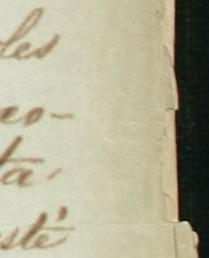 les
co-
ta
sté